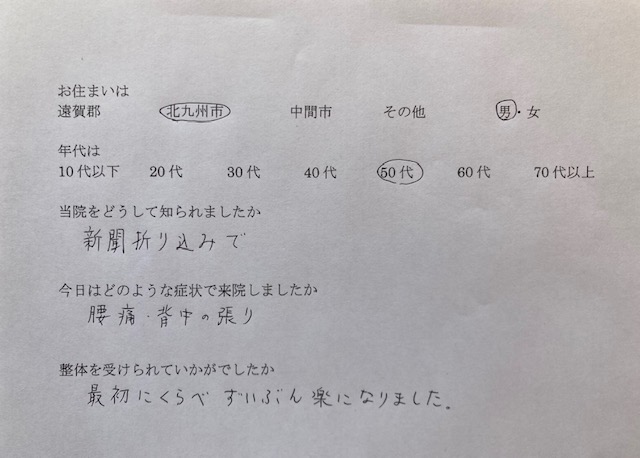 お住まいは
遠賀郡 北九州市 中間市 その他 男・女
年代は
10代以下 20代 30代 40代 50代 60代 70代以上
当院をどうして知られましたか
新聞折り込みで
今日はどのような症状で来院しましたか
腰痛・背中の張り
整体を受けられていかがでしたか
最初にくらべ ずいぶん楽になりました。